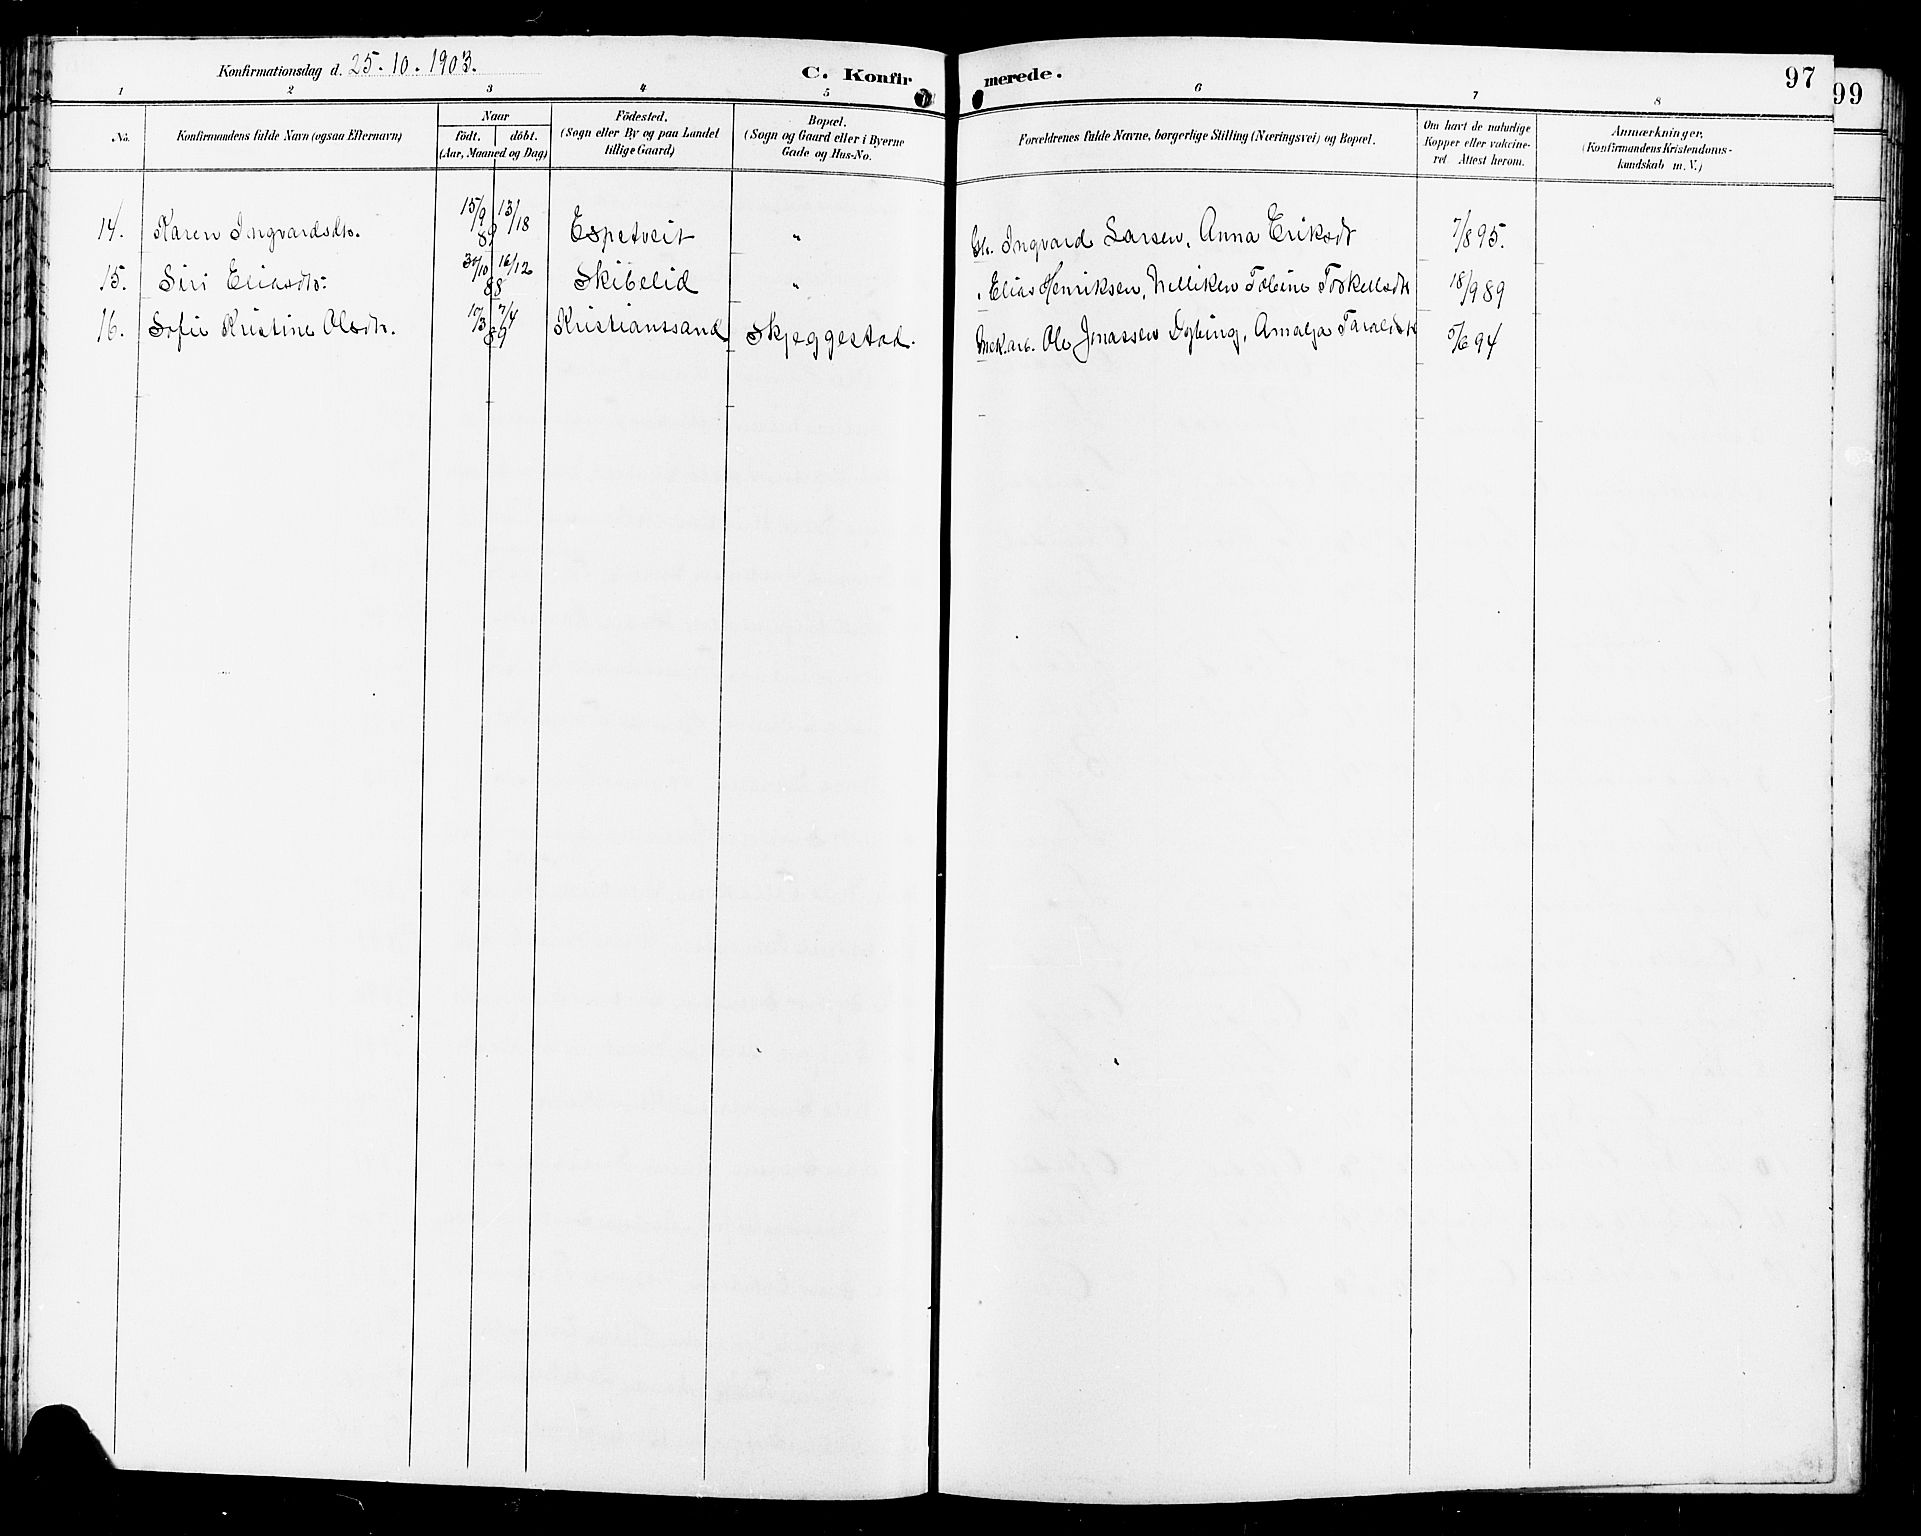 Konfirmationsdag d. 25.10.1903.
C. Konfirmerede.
97
99
1 2 3 4 5 6 7 8
No.
Konfirmandens fulde Navn (ogsaa Efternavn)
Naar
födt. döbt.
(Aar, Maaned og Dag)
Födested.
(Sogn eller By og paa Landet
tillige Gaard)
Bopæl.
(Sogn og Gaard eller i Byerne
Gade og Hus-No.
Forældrenes fulde Navne, borgerlige Stilling (Næringsvei) og Bopæl.
Om havt de naturlige
Kopper eller vakcine-
ret. Attest herom.
Anmærkninger.
(Konfirmandens Kristendoms-
kundskab m. V.)
14. Karen Ingvardsdtr. 15/9 89 13/18 Espetveit " Gbr. Ingvard Larsen, Anna Eriksdt 7/8 95.
15. Siri Eliasdtr. 30/10 88 16/12 Skibelid " " Elias Henriksen, Nelliken Tobine Torkellsdtr 18/9 89
16. Sofie Kristine Olsdtr. 17/3 89 7/4 Kristianssand Skjeggestad. Mek.arb. Ole Jonassen Dybing, Amalja Taraldsdtr 5/6 94